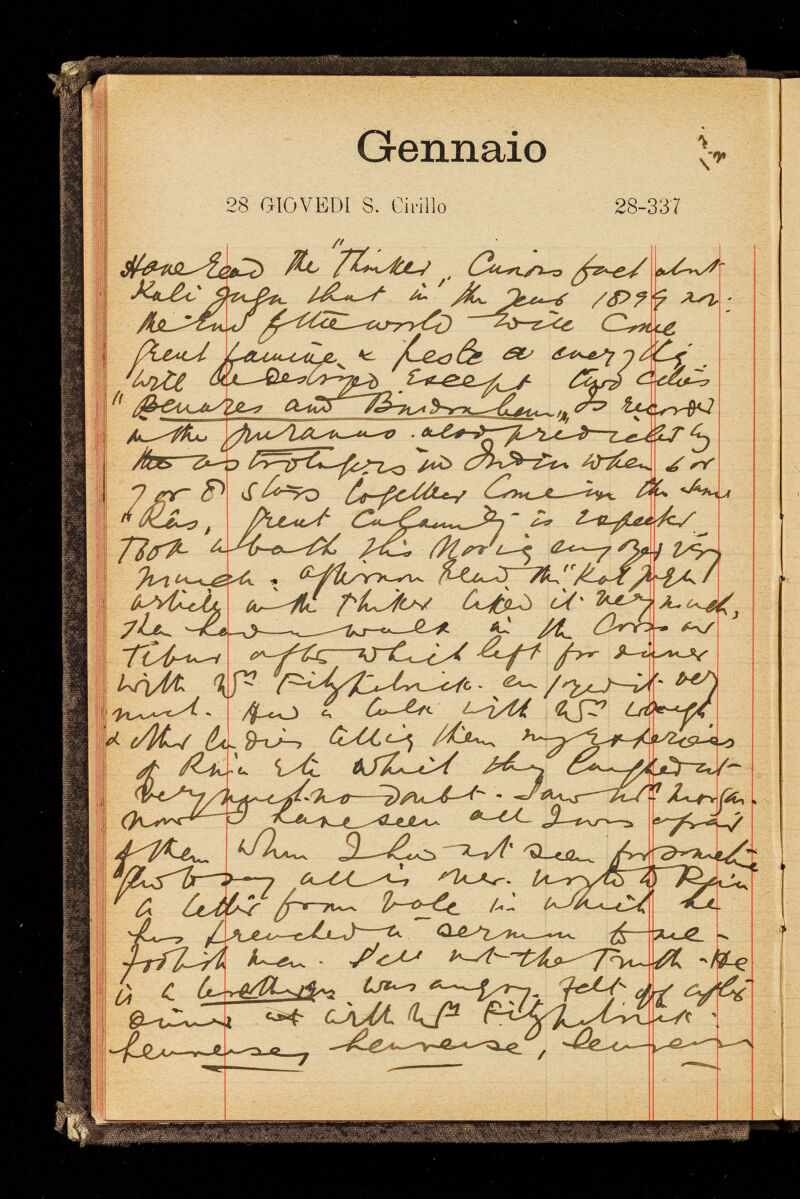 Gennaio
28 GIOVEDI S. Cirillo 28-337
Have read the "Thinker", Curious fact about
Kali Juga that in the year 1899 nov:
the End of the world will Come
great famine & peste & everything
will be destroyed Except two cities
"Benares and Bindraban", Is recorded
in the Puranas. also predicted by
the astrologers in India when 6 or
7 or 8 stars together Come in the same
"Râs, great Calamity is expected
Took a bath this Morning enjoyed very
much. afternoon Read the "Kali Juga"
article in the Thinker liked it very much,
then had a walk in the Corso and
after which left for dinner
with Mrs Fitzpatrick. enjoyed it very
much. Had a talk with Mrs
& other ladies telling them my Experiences
of Etc which they laughed at
very much no doubt. Saw Mrs Morgan.
now I have seen all I was afraid
of them when I had not seen for sometime
to say all is over. wrote to
a letter from in which he
has preached a sermon to me -
foolish man. the Truth - He
is a was angry. Felt off after
dinner with Mrs Fitzpatrick.
heureuse, heureuse, heureuse